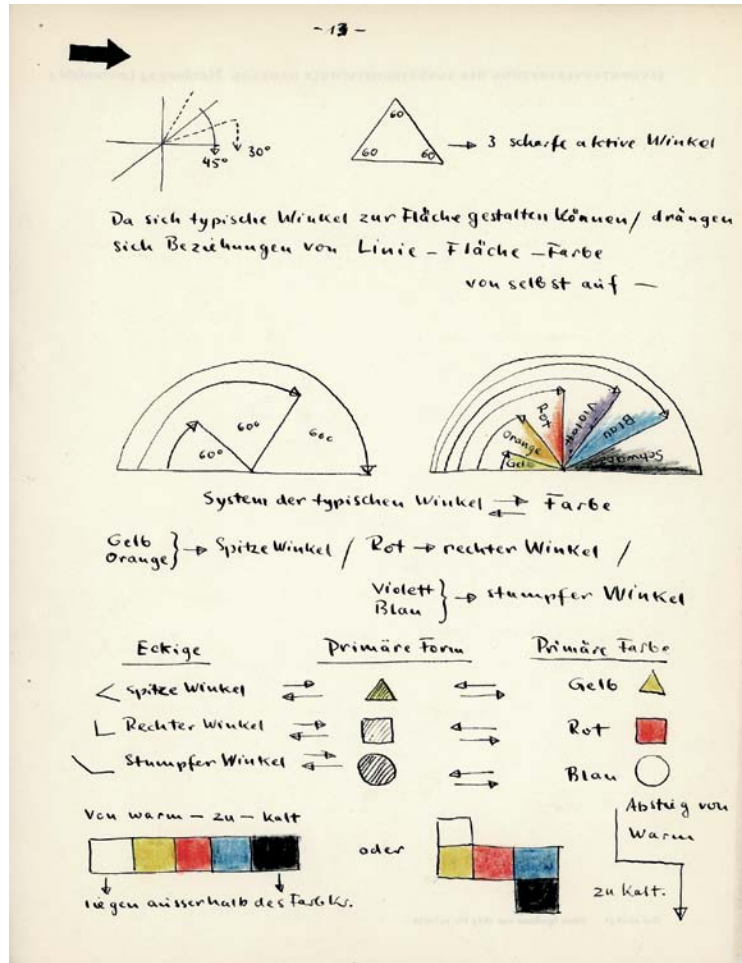 - 13 -
45° 30°
60
60 60
3 scharfe aktive Winkel
Da sich typische Winkel zur Fläche gestalten können / drängen
sich Beziehungen von Linie – Fläche – Farbe
von selbst auf —
60° 60° 60°
Gelb Orange Rot Violett Blau Schwarz
System der typischen Winkel Farbe
Gelb
Orange } Spitze Winkel / Rot rechter Winkel /
Violett
Blau } stumpfer Winkel
Eckige Primäre Form Primäre Farbe
Spitze Winkel Gelb
Rechter Winkel Rot
Stumpfer Winkel Blau
Von warm – zu – kalt
Abstieg von
Warm
oder
zu kalt.
liegen ausserhalb des Farbkr.